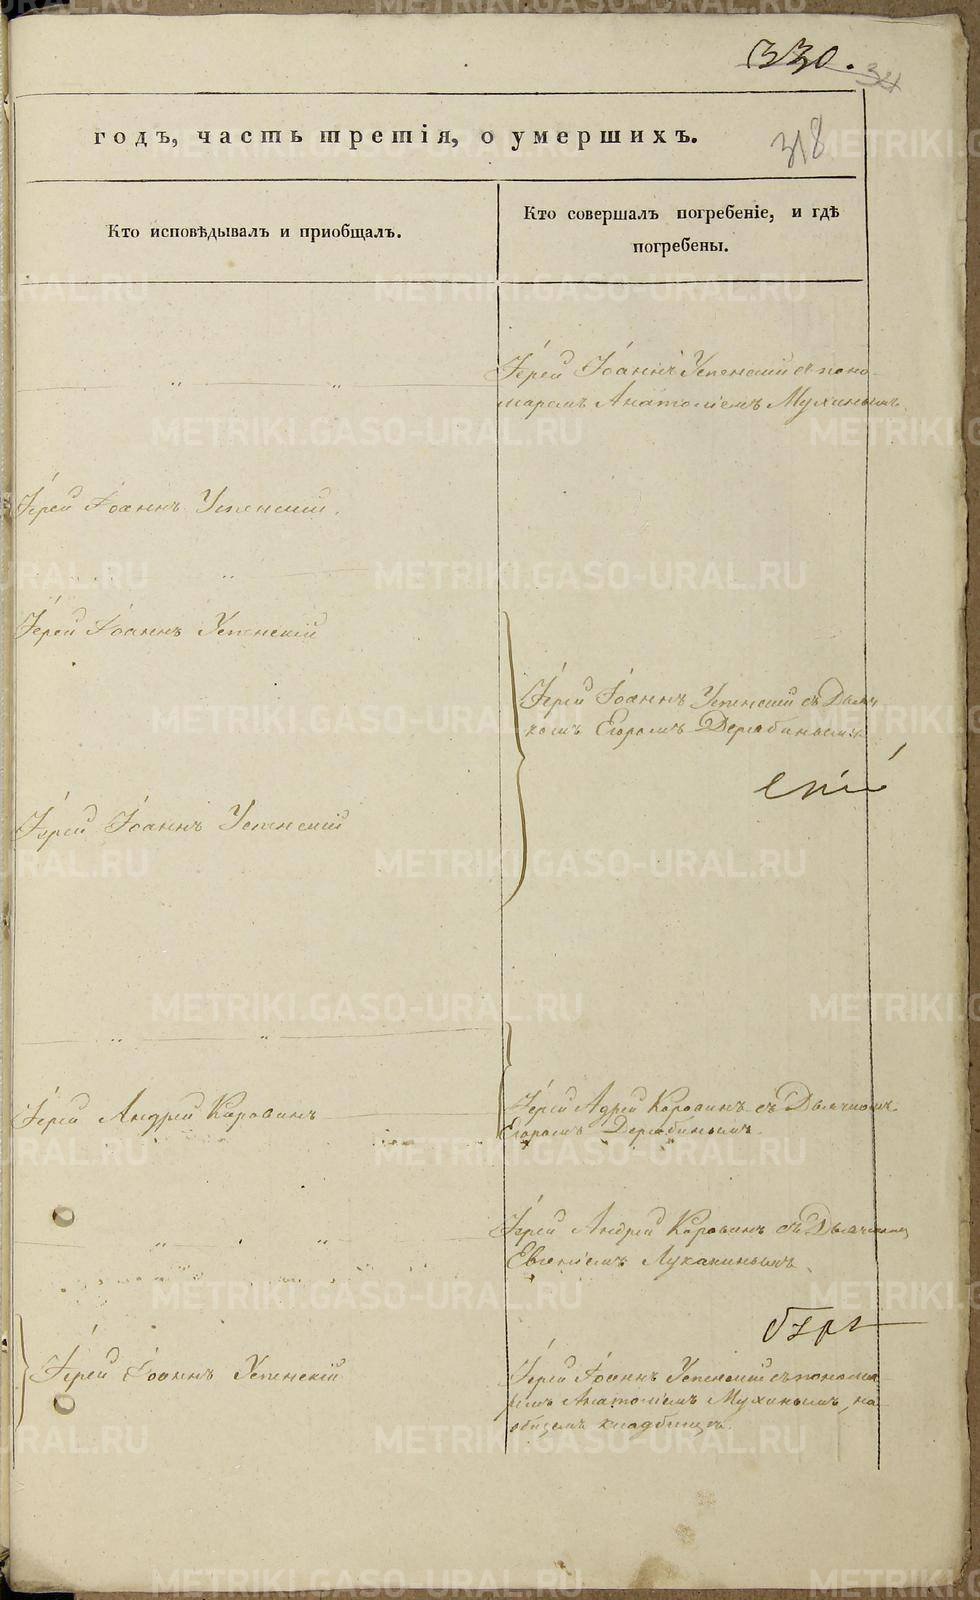 330.
34
318
годъ, часть третія, о умершихъ.
Кто исповѣдывалъ и приобщалъ.
Кто совершалъ погребеніе, и гдѣ
погребены.
Іерей Іоаннъ Успенскій съ поно-
маремъ Анатоліемъ Мухинымъ.
Іерей Іоаннъ Успенскій.
Іерей Іоаннъ Успенскій
Іерей Іоаннъ Успенскій съ Дьяч
комъ Егоромъ Дерябинымъ.
Іерей Іоаннъ Успенскій
Іерей Андрей Коровинъ
Іерей Адрей Коровинъ съ Дьячкомъ
Егоромъ Дерябинымъ.
Іерей Андрей Коровинъ съ Дьячкомъ
Евгеніемъ Луканинымъ.
Іерей Іоаннъ Успенскій
Іерей Іоаннъ Успенскій съ понома
ремъ Анатоліемъ Мухинымъ, на
общемъ кладбищѣ.
METRIKI.GASO-URAL.RU